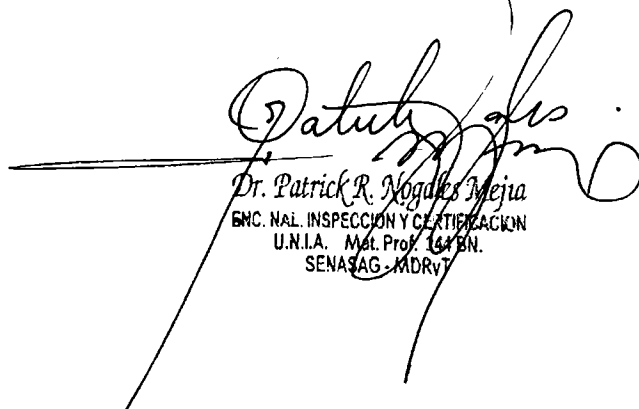 Dr. Patrick R. Nogales Mejia
ENC. NAL. INSPECCION Y CERTIFICACION
U.N.I.A. Mat. Prof. 144 BN.
SENASAG - MDRyT